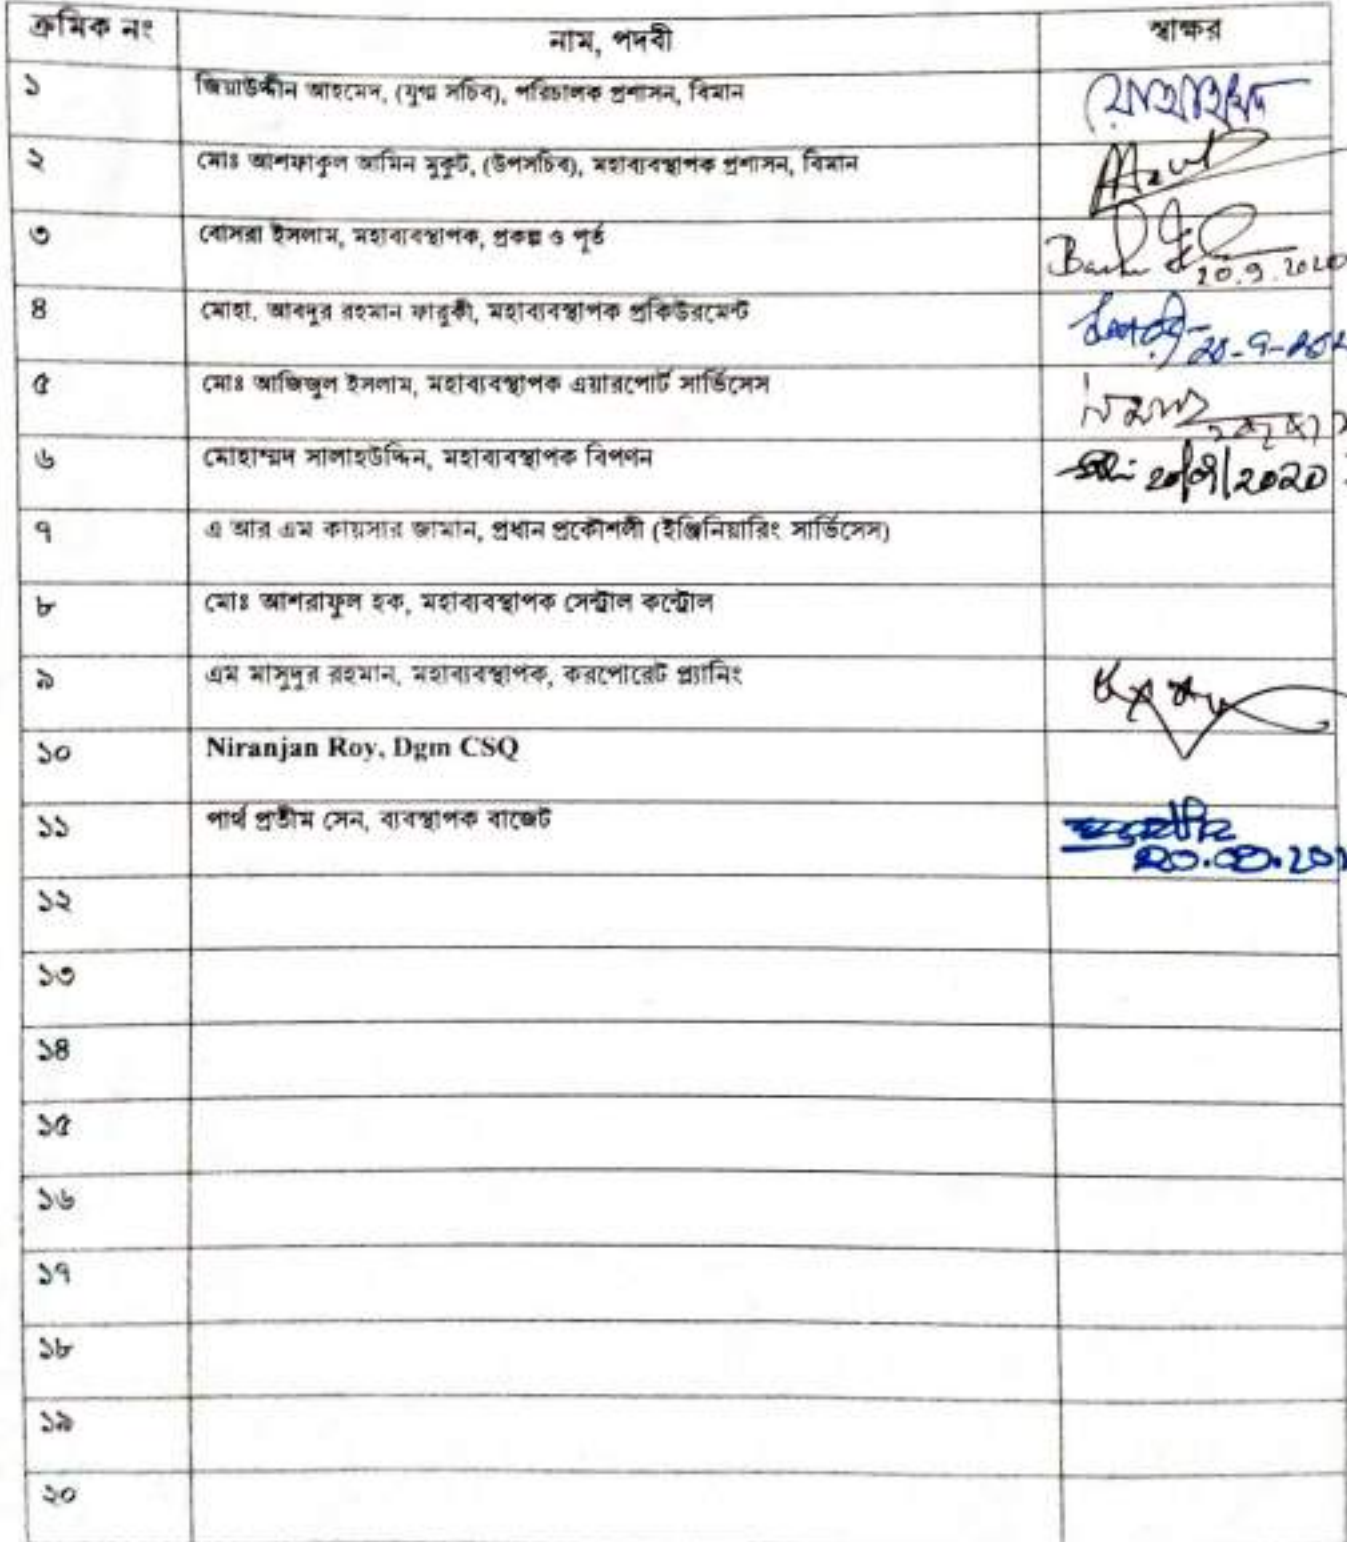 ক্রমিক নং নাম, পদবী স্বাক্ষর
১ জিয়াউদ্দীন আহমেদ, (যুগ্ম সচিব), পরিচালক প্রশাসন, বিমান
২ মোঃ আশফাকুল আমিন মুকুট, (উপসচিব), মহাব্যবস্থাপক প্রশাসন, বিমান
৩ বোসরা ইসলাম, মহাব্যবস্থাপক, প্রকল্প ও পূর্ত
20.9.2020
৪ মোহা. আবদুর রহমান ফারুকী, মহাব্যবস্থাপক প্রকিউরমেন্ট
৫ মোঃ আজিজুল ইসলাম, মহাব্যবস্থাপক এয়ারপোর্ট সার্ভিসেস
৬ মোহাম্মদ সালাহউদ্দিন, মহাব্যবস্থাপক বিপণন 20/09/2020
৭ এ আর এম কায়সার জামান, প্রধান প্রকৌশলী (ইঞ্জিনিয়ারিং সার্ভিসেস)
৮ মোঃ আশরাফুল হক, মহাব্যবস্থাপক সেন্ট্রাল কন্ট্রোল
৯ এম মাসুদুর রহমান, মহাব্যবস্থাপক, করপোরেট প্ল্যানিং
১০ Niranjan Roy, Dgm CSQ
১১ পার্থ প্রতীম সেন, ব্যবস্থাপক বাজেট
১২
১৩
১৪
১৫
১৬
১৭
১৮
১৯
২০